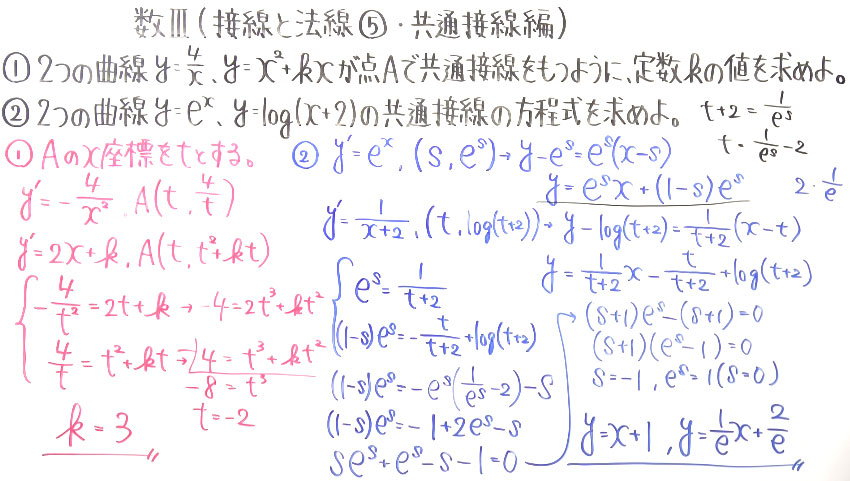 数Ⅲ(接線と法線⑤・共通接線編)
① 2つの曲線 y=4/x、y=x²+kxが点Aで共通接線をもつように、定数kの値を求めよ。
② 2つの曲線 y=eˣ、y=log(x+2)の共通接線の方程式を求めよ。
t+2=1/eˢ
t=1/eˢ-2
2・1/e
① Aのx座標をtとする。
y'=-4/x², A(t, 4/t)
y'=2x+k, A(t, t²+kt)
-4/t²=2t+k → -4=2t³+kt²
4/t=t²+kt → -)4=t³+kt²
-8=t³
t=-2
k=3
② y'=eˣ, (s, eˢ) → y-eˢ=eˢ(x-s)
y=eˢx+(1-s)eˢ
y'=1/(x+2), (t, log(t+2)) → y-log(t+2)=1/(t+2)(x-t)
y=1/(t+2)x-t/(t+2)+log(t+2)
eˢ=1/(t+2)
(1-s)eˢ=-t/(t+2)+log(t+2)
(1-s)eˢ=-eˢ(1/eˢ-2)-s
(1-s)eˢ=-1+2eˢ-s
seˢ+eˢ-s-1=0
→ (s+1)eˢ-(s+1)=0
(s+1)(eˢ-1)=0
s=-1, eˢ=1(s=0)
y=x+1, y=1/e x+2/e